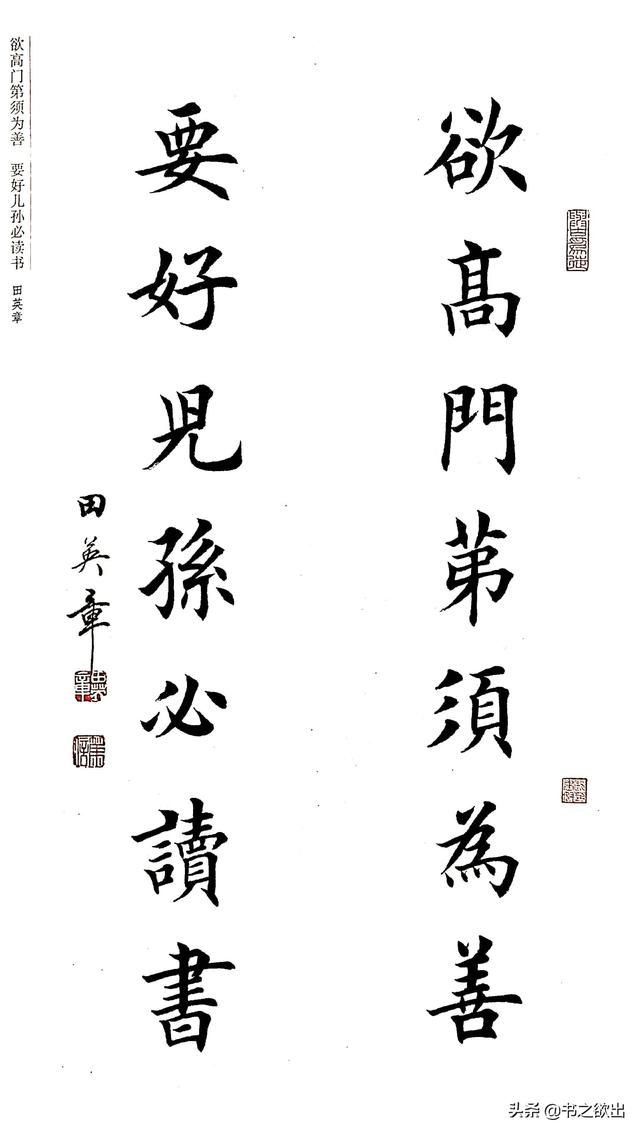 欲髙門苐須為善
要好児孫必讀書
田英章
欲高门第须为善 要好儿孙必读书 田英章
头条 @书之欲出